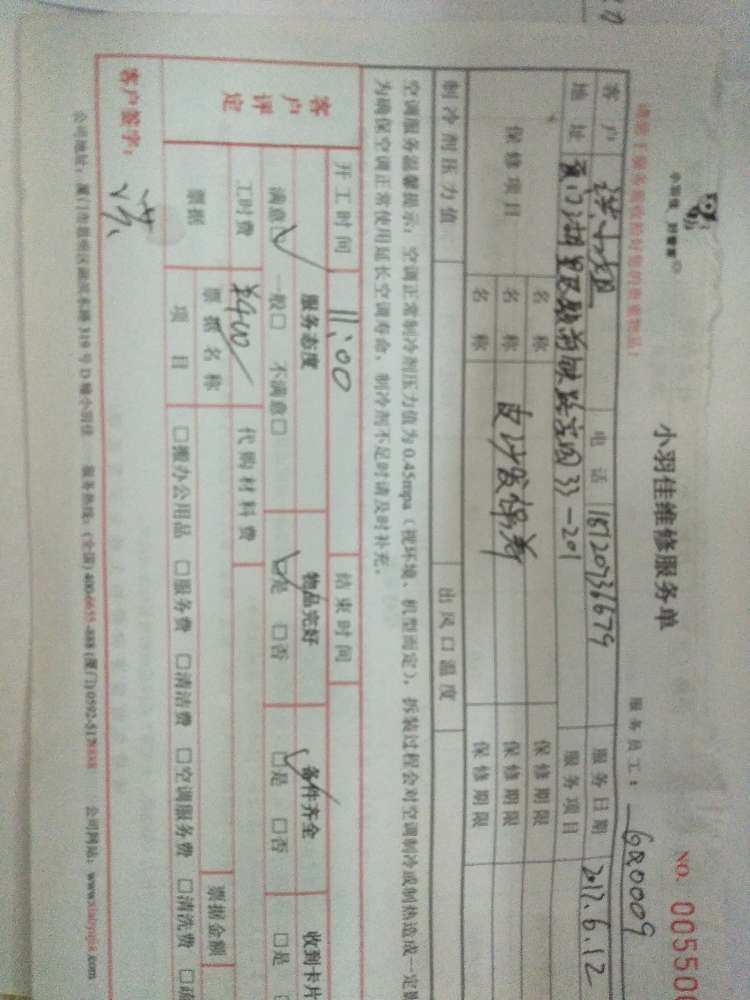 小羽佳维修服务单
服务员工： 680009
NO. 00550
请您于服务前收拾好您的贵重物品！
客户 洪小姐 电话 18120736679 服务日期 2017.6.12
地址 厦门湖里 33-201 服务项目
保修项目 名称 保修期限
名称 保修期限
名称 保修期限
制冷剂压力值 出风口温度
空调服务温馨提示：空调正常制冷剂压力值为0.45mpa（视环境、机型而定），拆装过程会对空调制冷或制热造成一定影
为确保空调正常使用延长空调寿命，制冷剂不足时请及时补充。
开工时间 11:00 结束时间
客户评定 服务态度 物品完好 备件齐全 收到卡片
满意□ 一般□ 不满意□ □是 □否 □是 □否 □是
工时费 ¥400 代购材料费
票据 票据名称 票据金额
项目 □搬办公用品 □服务费 □清洁费 □空调服务费 □清洗费
客户签字： 洪
公司地址：厦门市 319号D幢小羽佳 服务热线：(全国) 400-6655-888 (厦门) 0592-5178888 公司网站：www.xiaoyujia.com